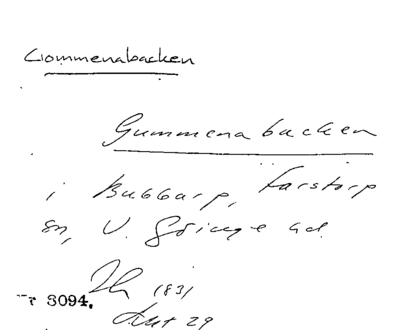 Gommenabacken
Gummena backen
i Bubbarp, Farstorp
sn, V. Göinge hd.
1831
3094.
29